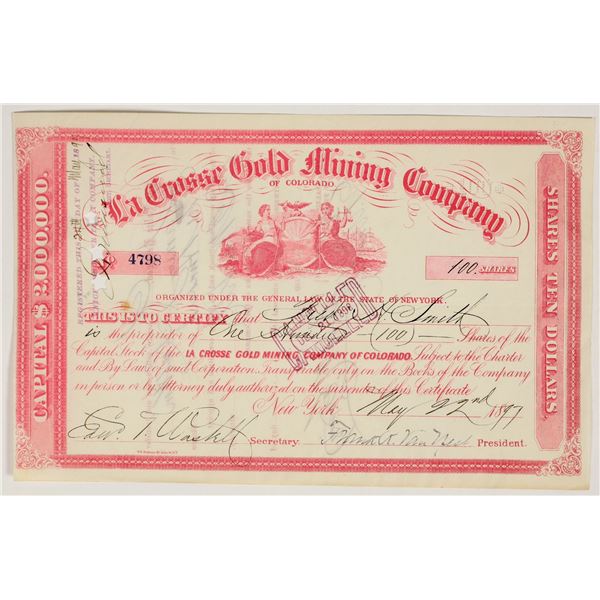 La Crosse Gold Mining Company
OF COLORADO
4798
100 SHARES
ORGANIZED UNDER THE GENERAL LAW OF THE STATE OF NEW YORK.
THIS IS TO CERTIFY that H. Smith
is the proprietor of One Hundred (100) Shares of the
Capital Stock of the LA CROSSE GOLD MINING COMPANY OF COLORADO. Subject to the Charter
and By Laws of said Corporation. Transferable only on the Books of the Company
in person or by Attorney duly authorized on the surrender of this Certificate
New York May 22nd 1897
Secretary. President.
CAPITAL $2,000,000.
SHARES TEN DOLLARS.
CANCELLED
REGISTERED THIS DAY OF May 189